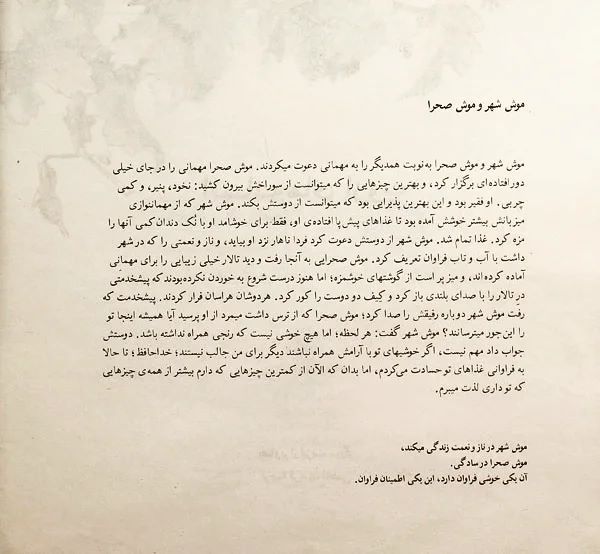 موش شهر و موش صحرا
موش شهر و موش صحرا به‌نوبت همدیگر را به مهمانی دعوت میکردند. موش صحرا مهمانی را در جای خیلی
دورافتاده‌ای برگزار کرد، و بهترین چیزهایی را که میتوانست از سوراخش بیرون کشید: نخود، پنیر، و کمی
چربی. او فقیر بود و این بهترین پذیرایی بود که میتوانست از دوستش بکند. موش شهر که از مهماننوازی
میزبانش بیشتر خوشش آمده بود تا غذاهای پیش پا افتاده‌ی او، فقط برای خوشامد او با نُک دندان کمی آنها را
مزه کرد. غذا تمام شد. موش شهر از دوستش دعوت کرد فردا ناهار نزد او بیاید، و ناز و نعمتی را که در شهر
داشت با آب و تاب فراوان تعریف کرد. موش صحرایی به آنجا رفت و دید تالار خیلی زیبایی را برای مهمانی
آماده کرده‌اند، و میز پر است از گوشتهای خوشمزه؛ اما هنوز درست شروع به خوردن نکرده‌بودند که پیشخدمتی
در تالار را با صدای بلندی باز کرد و کیف دو دوست را کور کرد. هردوشان هراسان فرار کردند. پیشخدمت که
رفت موش شهر دوباره رفیقش را صدا کرد؛ موش صحرا که از ترس داشت میمرد از او پرسید آیا همیشه اینجا تو
را این‌جور میترسانند؟ موش شهر گفت: هر لحظه؛ اما هیچ خوشی نیست که رنجی همراه نداشته باشد. دوستش
جواب داد مهم نیست، اگر خوشیهای تو با آرامش همراه نباشند دیگر برای من جالب نیستند؛ خداحافظ؛ تا حالا
به فراوانی غذاهای تو حسادت می‌کردم، اما بدان که الآن از کمترین چیزهایی که دارم بیشتر از همه‌ی چیزهایی
که تو داری لذت میبرم.
موش شهر در ناز و نعمت زندگی میکند،
موش صحرا در سادگی.
آن یکی خوشی فراوان دارد، این یکی اطمینان فراوان.